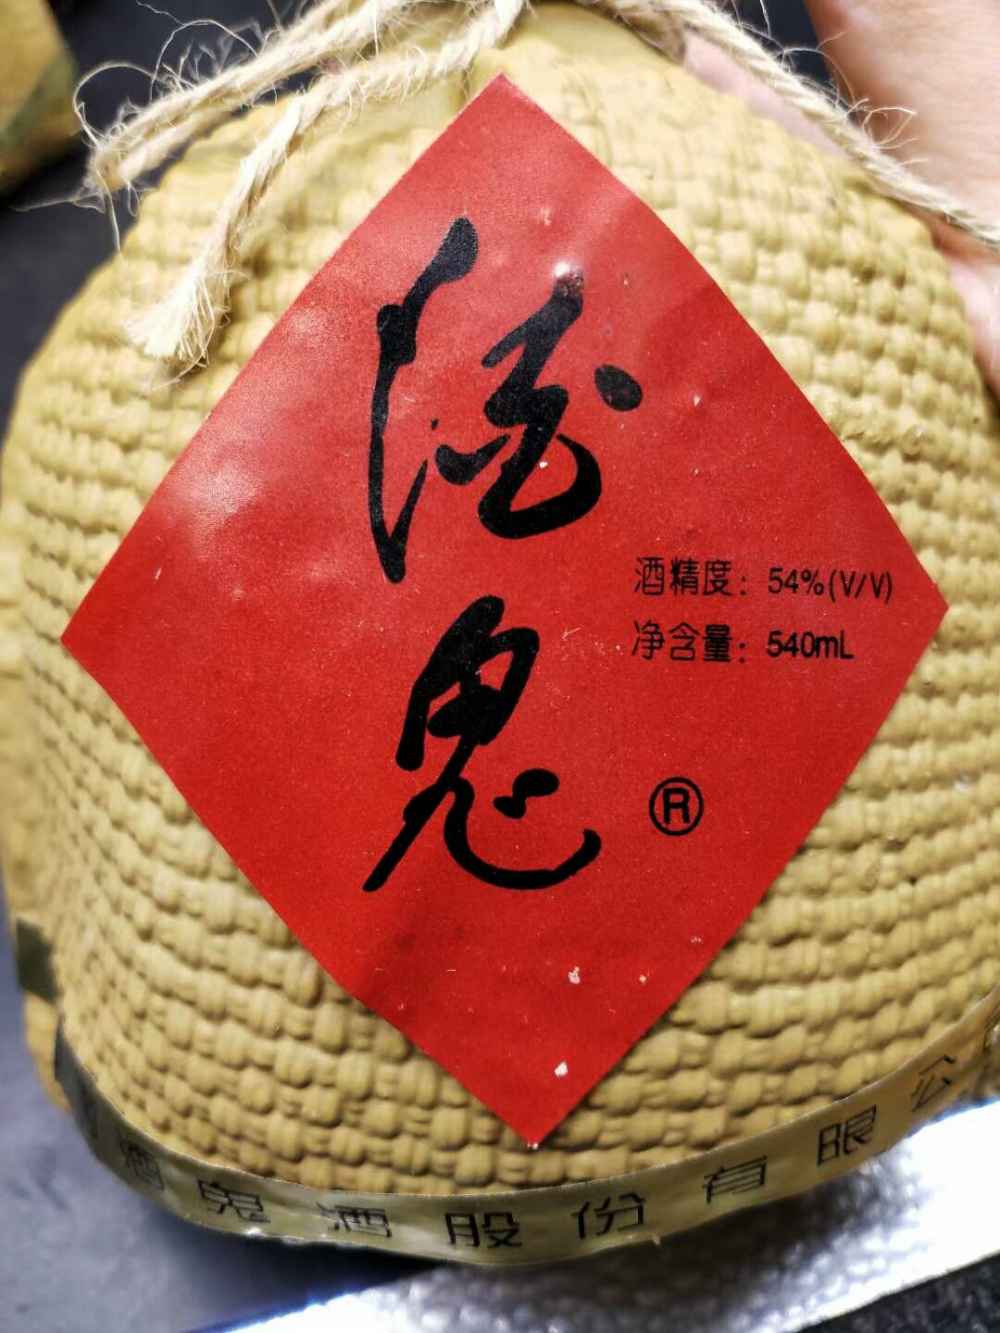 酒鬼
酒精度：54%(V/V)
净含量：540mL
®
酒鬼酒股份有限公